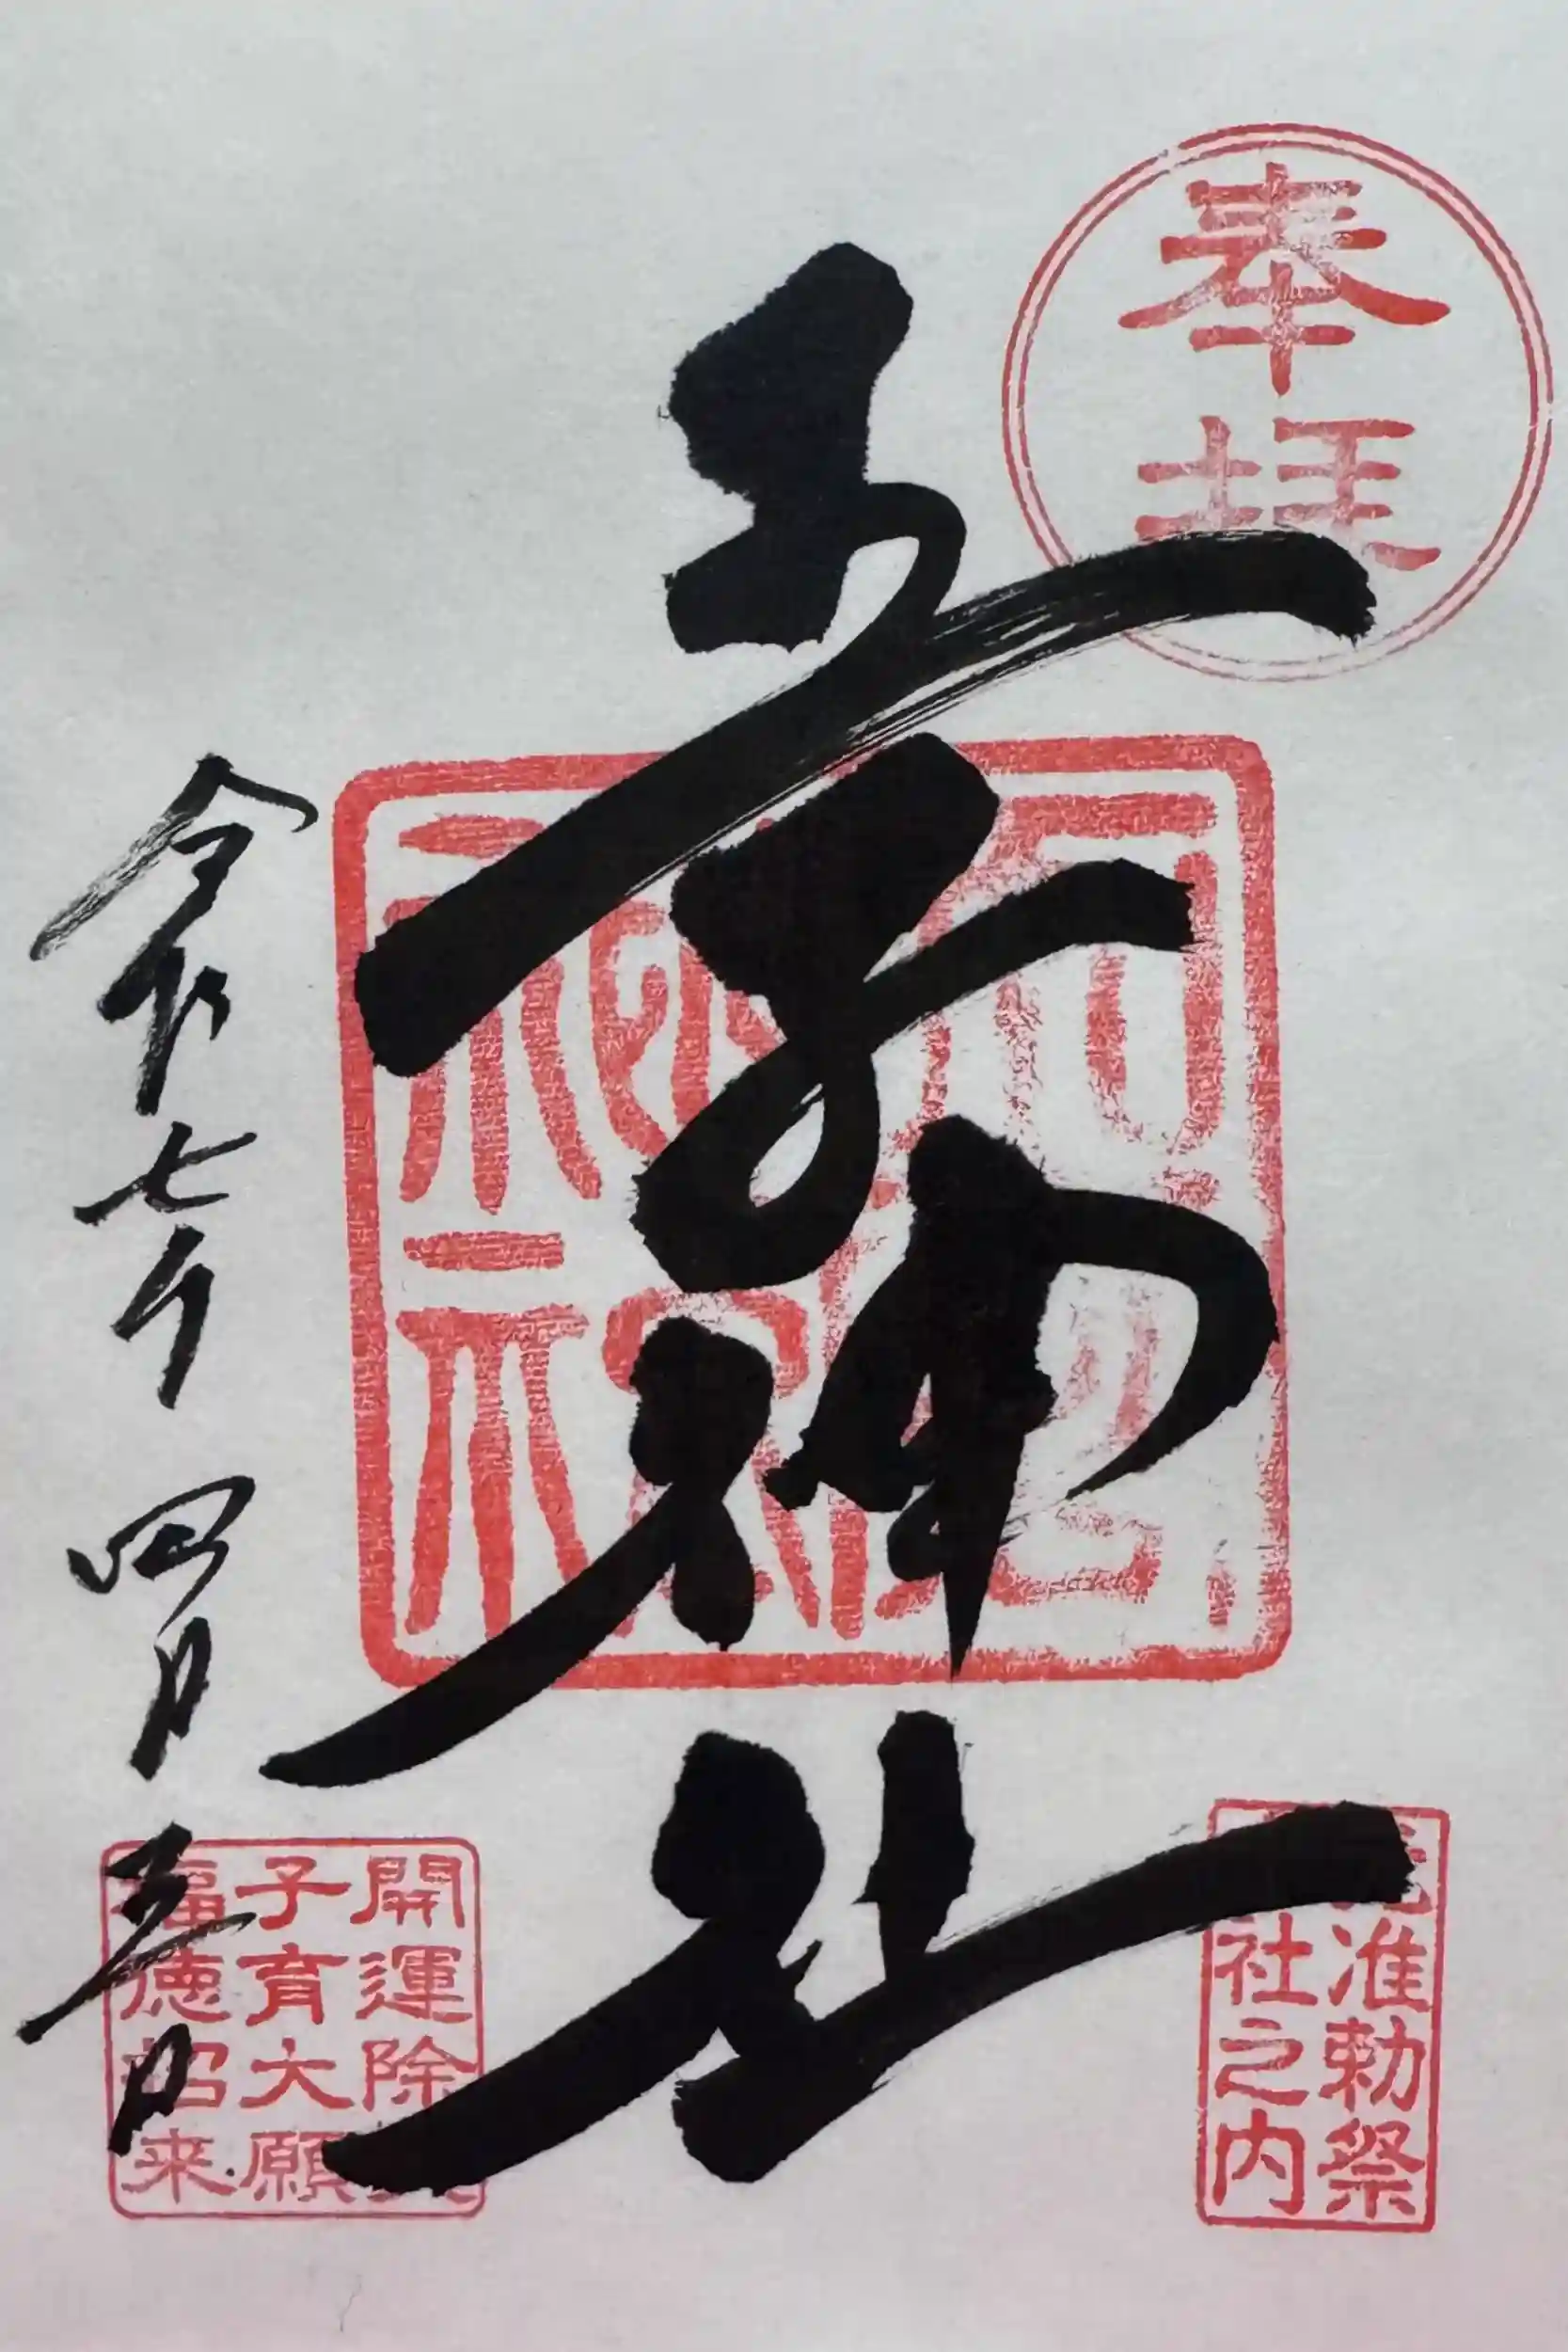 奉拝
王子神社
准勅祭
社之内
令和七年 四月 五日
開運除
子育大願
福徳招来